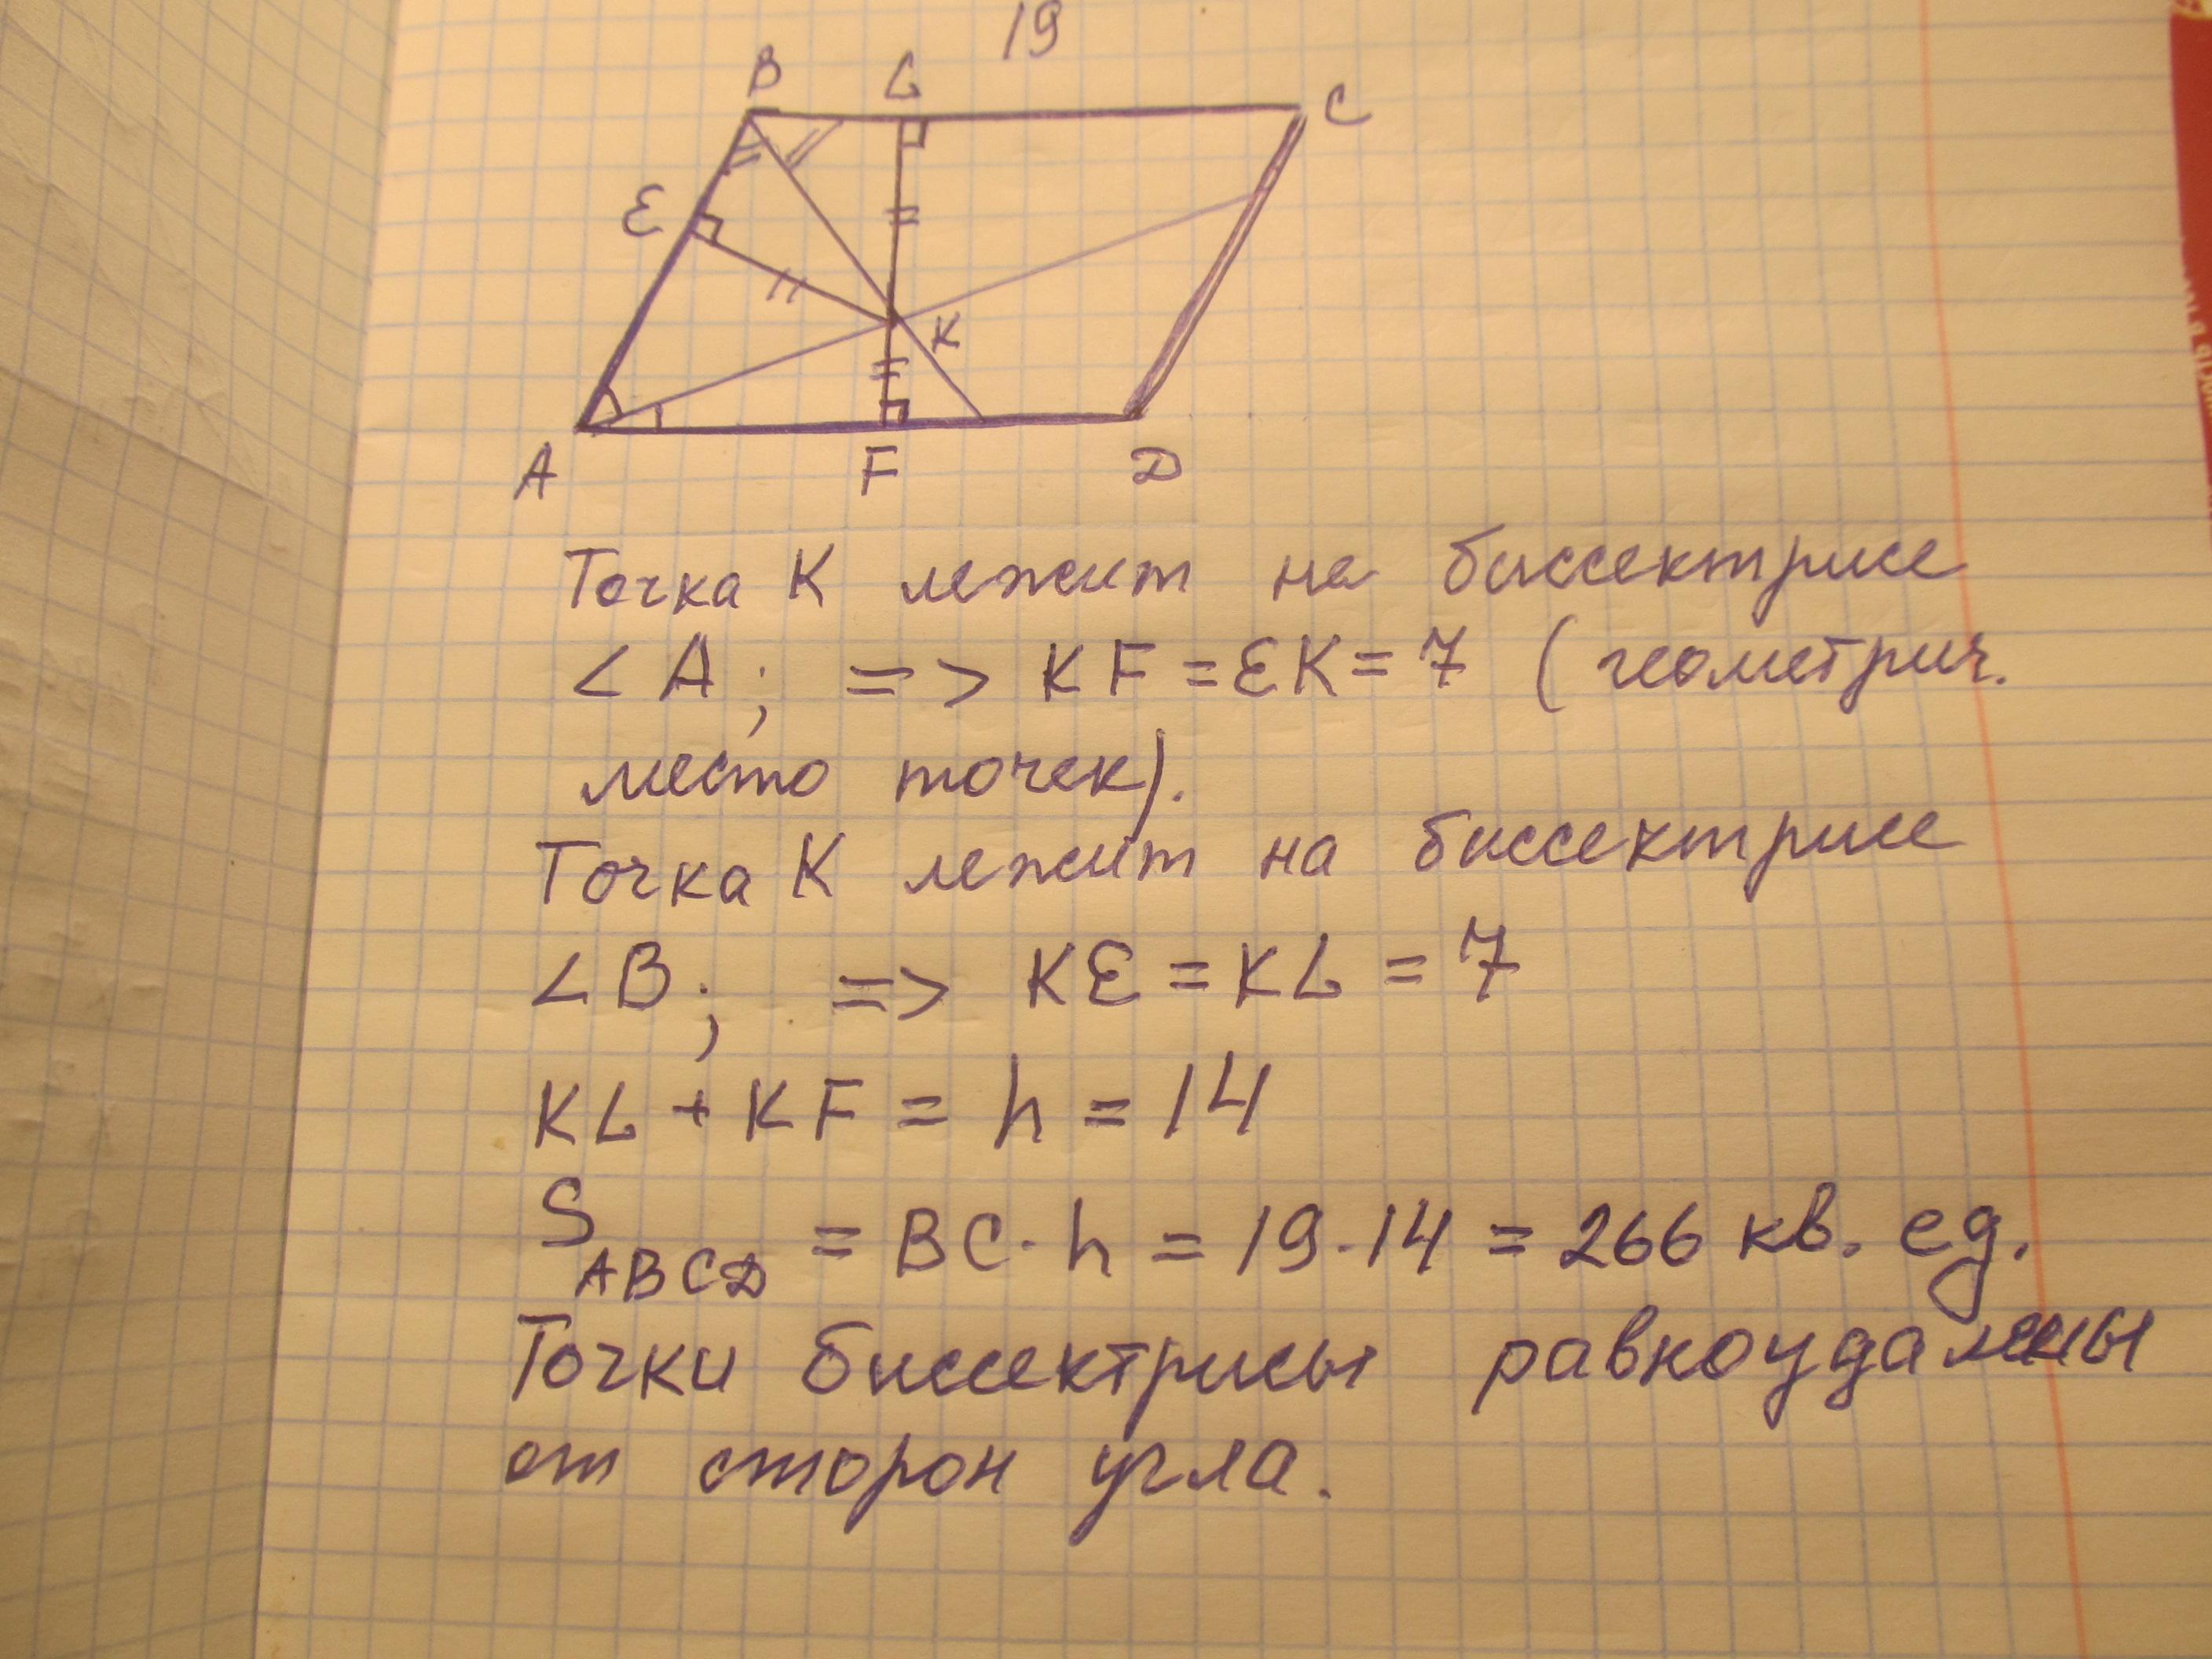 19
B L C
E
K
A F D
Точка К лежит на биссектрисе
< A; => KF = EK = 7 (геометрич.
место точек).
Точка К лежит на биссектрисе
< B; => KE = KL = 7
KL + KF = h = 14
S ABCD = BC · h = 19 · 14 = 266 кв. ед.
Точки биссектрисы равноудалены
от сторон угла.